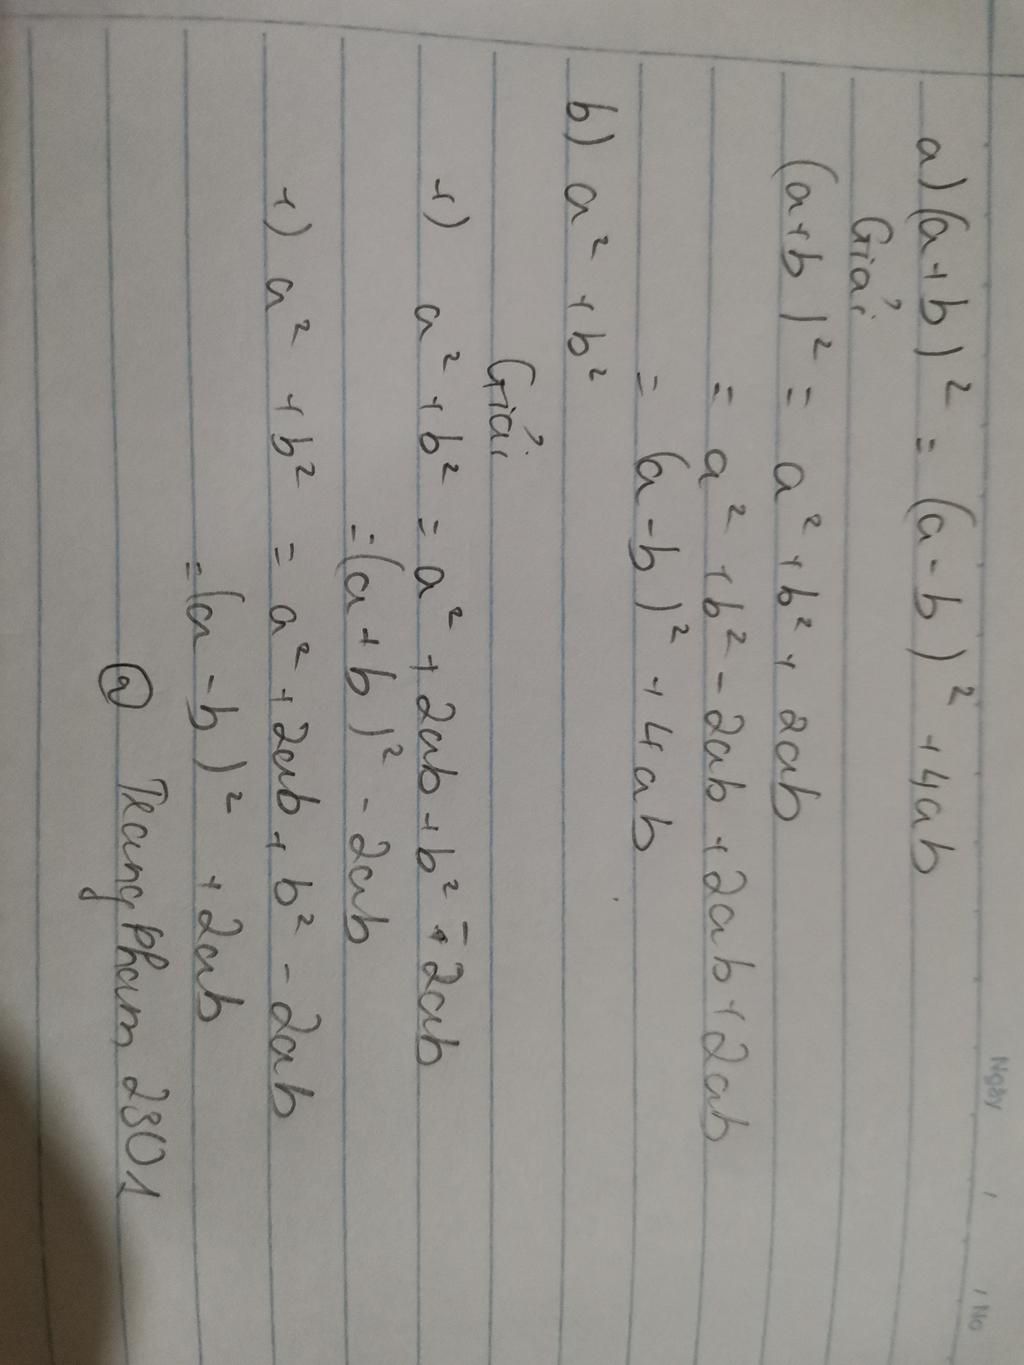 Ngày / / No
a) (a+b)² = (a-b)² + 4ab
Giải
(a+b)² = a² + b² + 2ab
= a² + b² - 2ab + 2ab + 2ab
= (a-b)² + 4ab
b) a² + b²
Giải
+) a² + b² = a² + 2ab + b² - 2ab
= (a+b)² - 2ab
+) a² + b² = a² + 2ab + b² - 2ab
= (a-b)² + 2ab
@ Trang Pham 2301